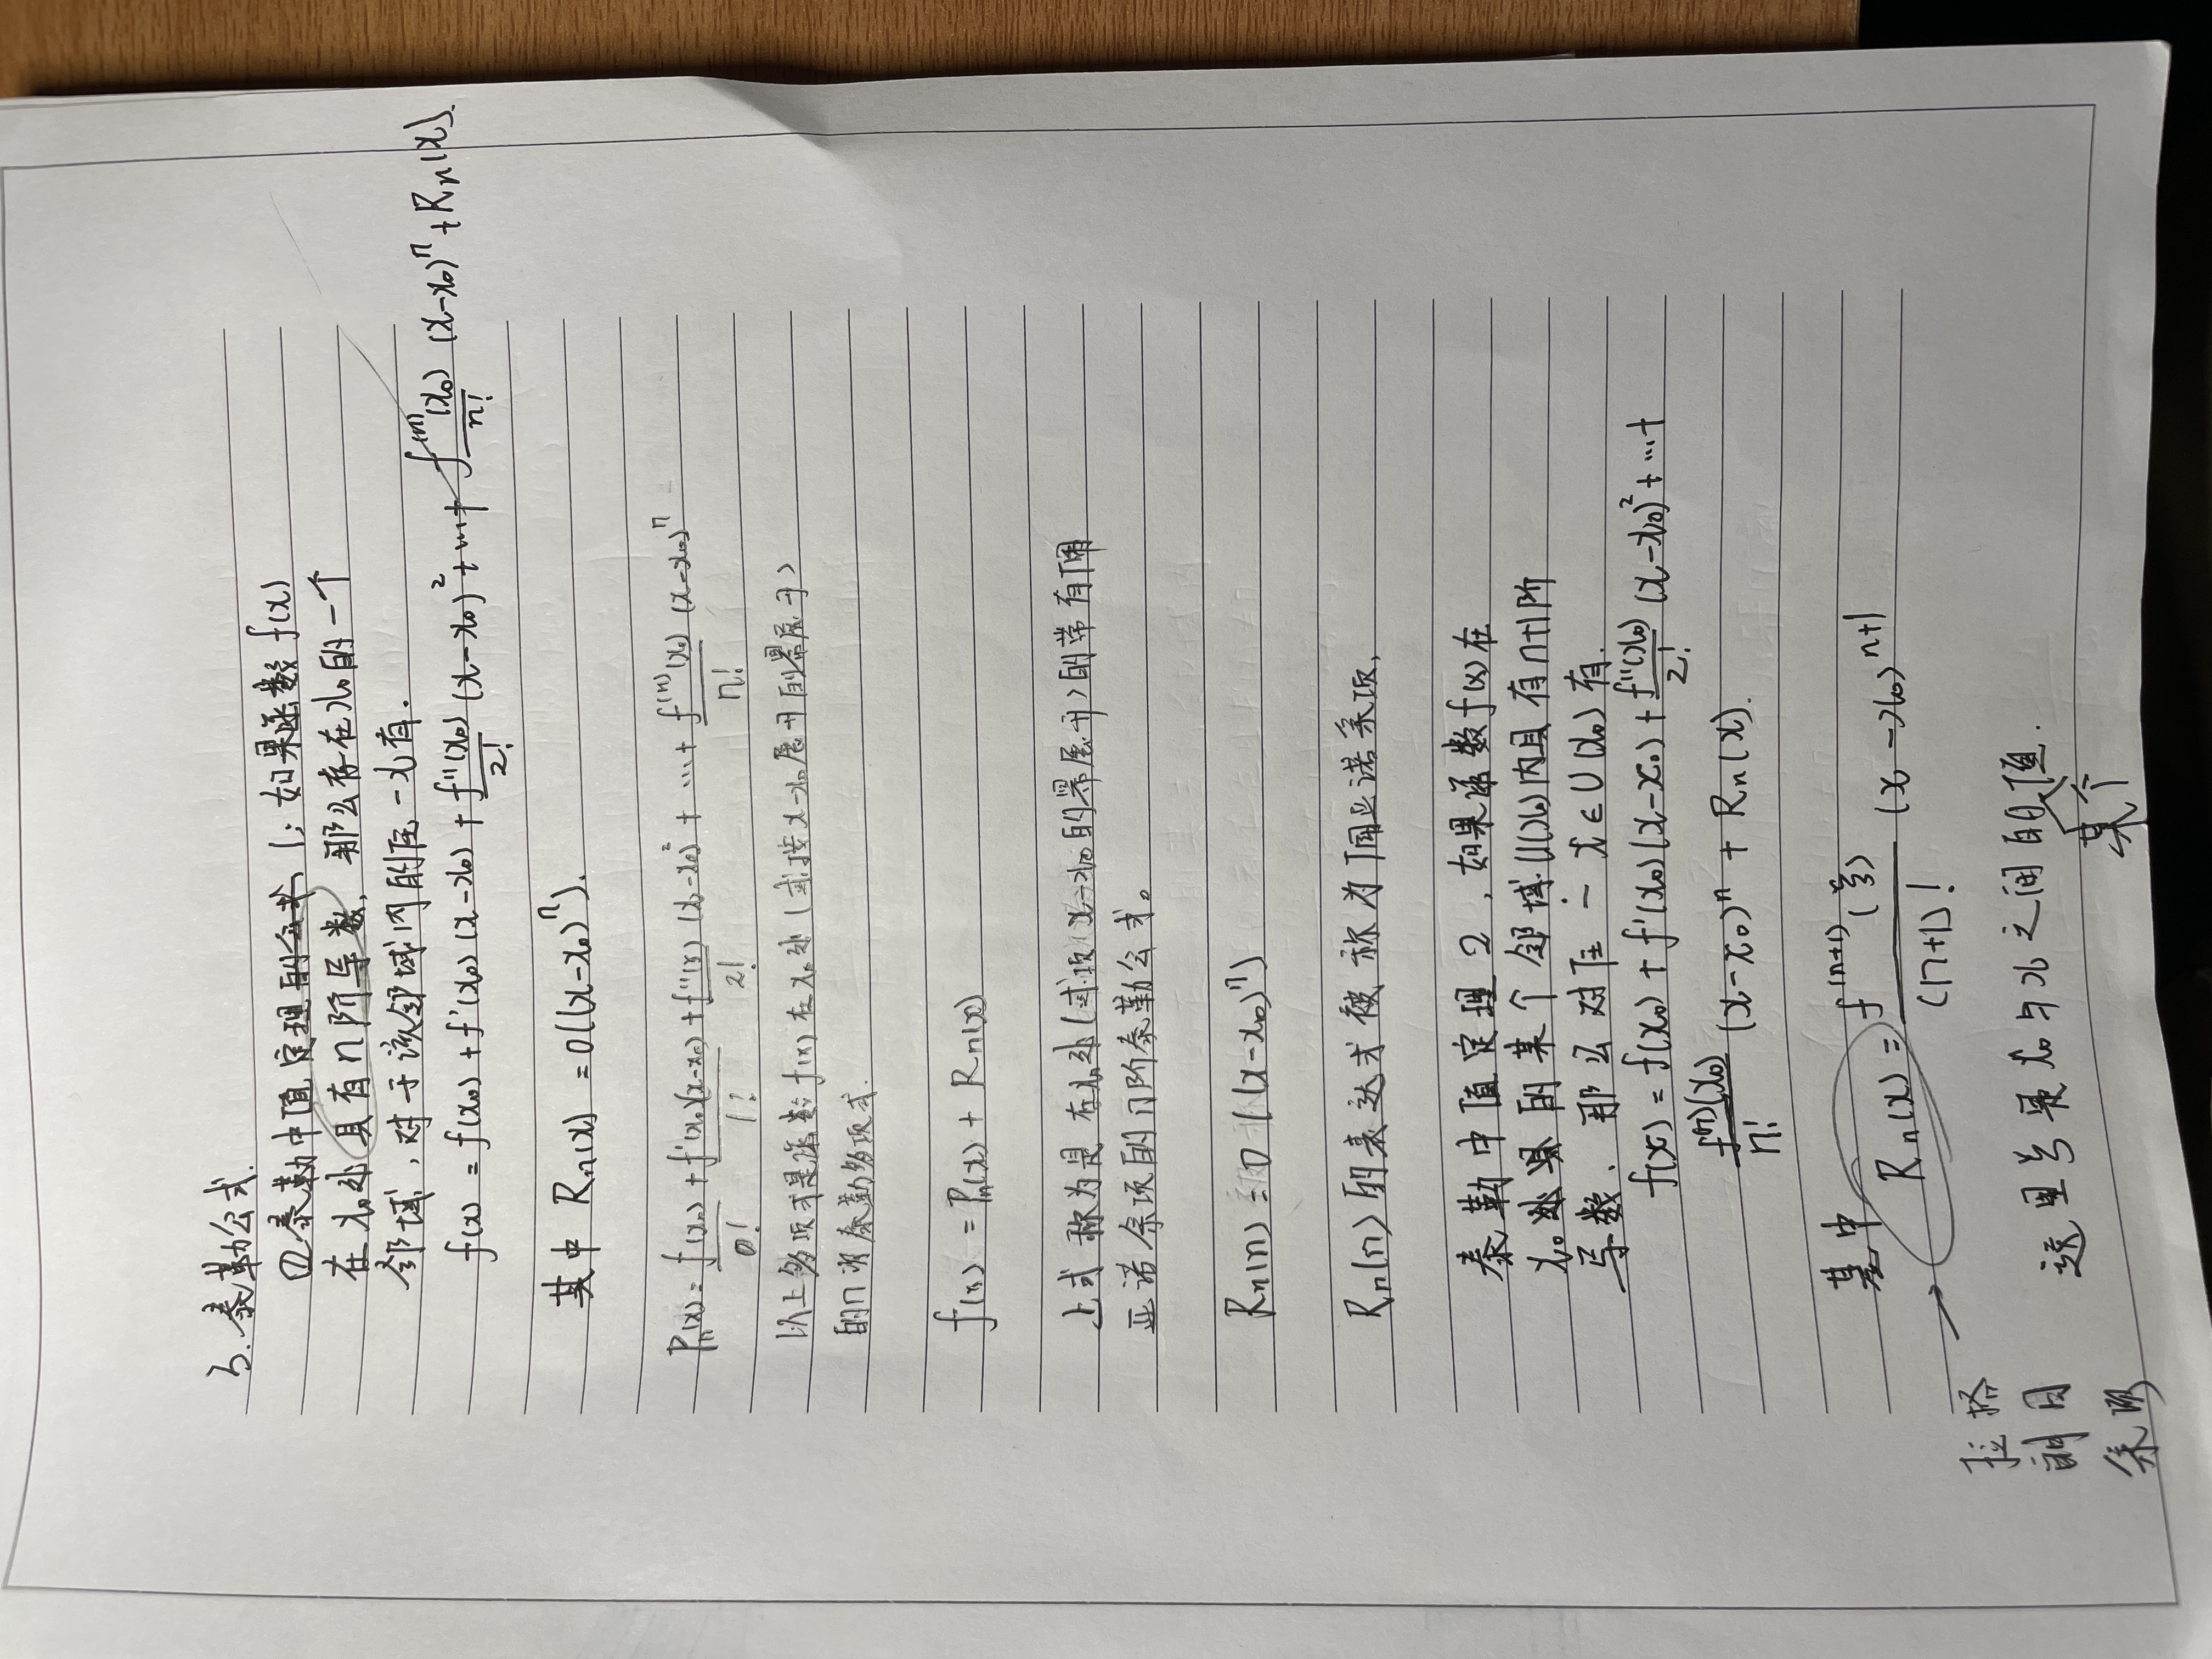 3. 泰勒公式.
① 泰勒中值定理的公式 1; 如果函数 f(x)
在 x₀ 处具有 n 阶导数, 那么存在 x₀ 的一个
邻域, 对于该邻域内的任一 x 有.
f(x) = f(x₀) + f'(x₀)(x-x₀) + f''(x₀)/2! (x-x₀)² + … + f⁽ⁿ⁾(x₀)/n! (x-x₀)ⁿ + Rn(x).
其中 Rn(x) = o((x-x₀)ⁿ).
Pn(x) = f(x₀)/0! + f'(x₀)(x-x₀)/1! + f''(x)/2! (x-x₀)² + … + f⁽ⁿ⁾(x₀)/n! (x-x₀)ⁿ
以上多项式是函数 f(x) 在 x₀ 处 (或按 x-x₀ 展开的幂展开)
的 n 次泰勒多项式.
f(x) = Pn(x) + Rn(x)
上式称为是在 x₀ 处 (或项 x-x₀ 的幂展开) 的带有佩
亚诺余项的 n 阶泰勒公式。
Rn(n) = o ((x-x₀)ⁿ)
Rn(n) 的表达式被称为佩亚诺余项,
泰勒中值定理 2, 如果函数 f(x) 在
x₀ 处具的某个邻域 U(x₀) 内具有 n+1 阶
导数, 那么对任一 x ∈ U(x₀) 有.
f(x) = f(x₀) + f'(x₀)(x-x₀) + f''(x₀)/2! (x-x₀)² + … +
f⁽ⁿ⁾(x₀)/n! (x-x₀)ⁿ + Rn(x).
其中
Rn(x) = f⁽ⁿ⁺¹⁾(ξ)/(n+1)! (x-x₀)ⁿ⁺¹
拉格
朗日
余项
这里 ξ 是 x₀ 与 x 之间的值.
某个